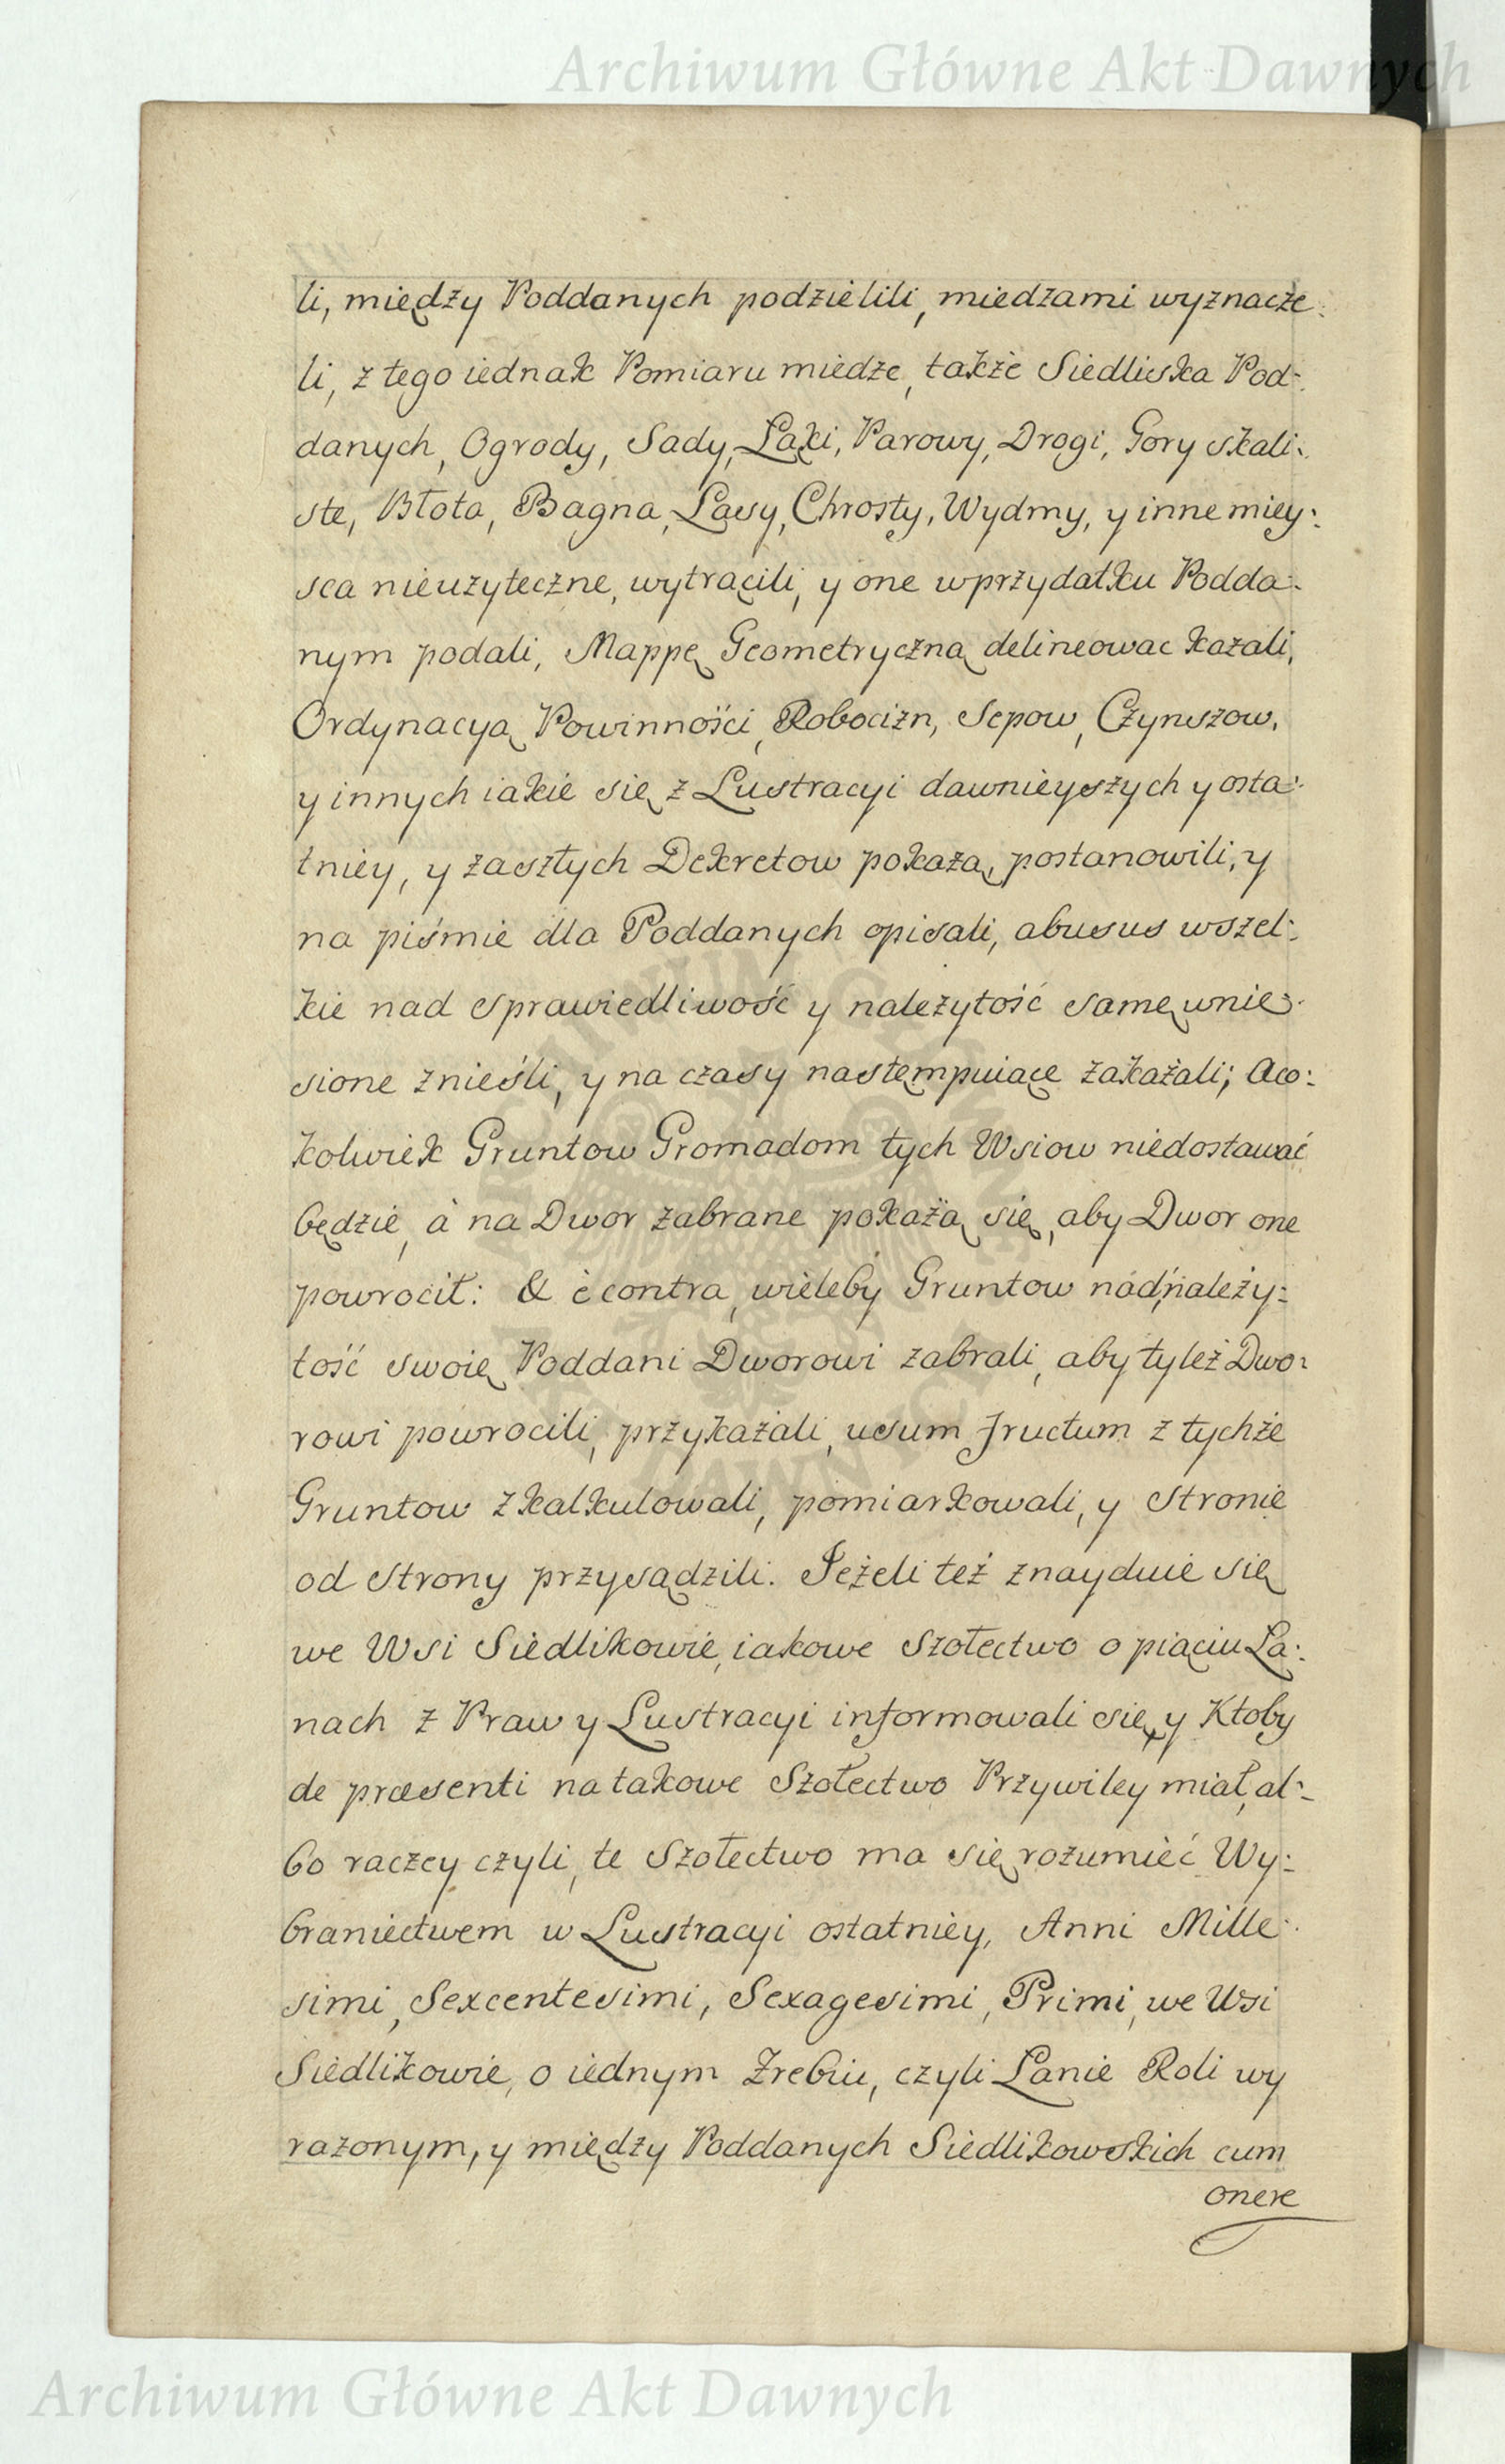 Archiwum Główne Akt Dawnych
li, między Poddanych podzielili, miedzami wyznacze:
li, z tego iednak Pomiaru miedze, także Siedliska Pod:
danych, Ogrody, Sady, Łąki, Parowy, Drogi, Gory skali:
ste, Błota, Bagna, Lasy, Chrosty, Wydmy, y inne miey:
sca nieużyteczne, wytrącili, y one w przydatku Podda:
nym podali, Mappę Geometryczną delineowac kazali,
Ordynacyą Powinności, Robocizn, Sepow, Czynszow,
y innych iakie się z Lustracyi dawnieyszych y osta:
tniey, y zaszłych Dekretow pokażą, postanowili, y
na piśmie dla Poddanych opisali, abusus wszel:
kie nad sprawiedliwość y należytość samę wnie:
sione znieśli, y na czasy nastempuiące zakazali; a co:
kolwiek Gruntow Gromadom tych Wsiow niedostawać
będzie, à na Dwor zabrane pokażą się, aby Dwor one
powrocił: & è contra, wieleby Gruntow nad należy:
tość swoię Poddani Dworowi zabrali, aby tyleż Dwo:
rowi powrocili, przykazali, usum fructum z tychże
Gruntow zkalkulowali, pomiarkowali, y Stronie
od Strony przysądzili. Jeżeli też znayduie się
we Wsi Siedlikowie, iakowe Szołectwo o piąciu Ła:
nach z Praw y Lustracyi informowali się, y Ktoby
de præsenti na takowe Szołectwo Przywiley miał, al:
bo raczey czyli, te Szołectwo ma się rozumieć Wy:
braniectwem w Lustracyi ostatniey, Anni Mille:
simi, Sexcentesimi, Sexagesimi, Primi, we Wsi
Siedlikowie, o iednym Zrebiu, czyli Łanie Roli wy
rażonym, y między Poddanych Siedlikowskich cum
onere
Archiwum Główne Akt Dawnych